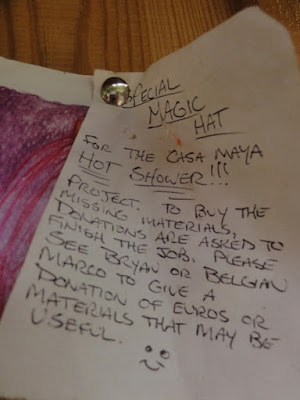 SPECIAL
MAGIC
HAT
FOR THE CASA MAYA
HOT SHOWER!!!
PROJECT. TO BUY THE
MISSING MATERIALS,
DONATIONS ARE ASKED TO
FINISH THE JOB. PLEASE
SEE BRYAN OR BELGIAN
MARCO TO GIVE A
DONATION OF EUROS OR
MATERIALS THAT MAY BE
USEFUL.